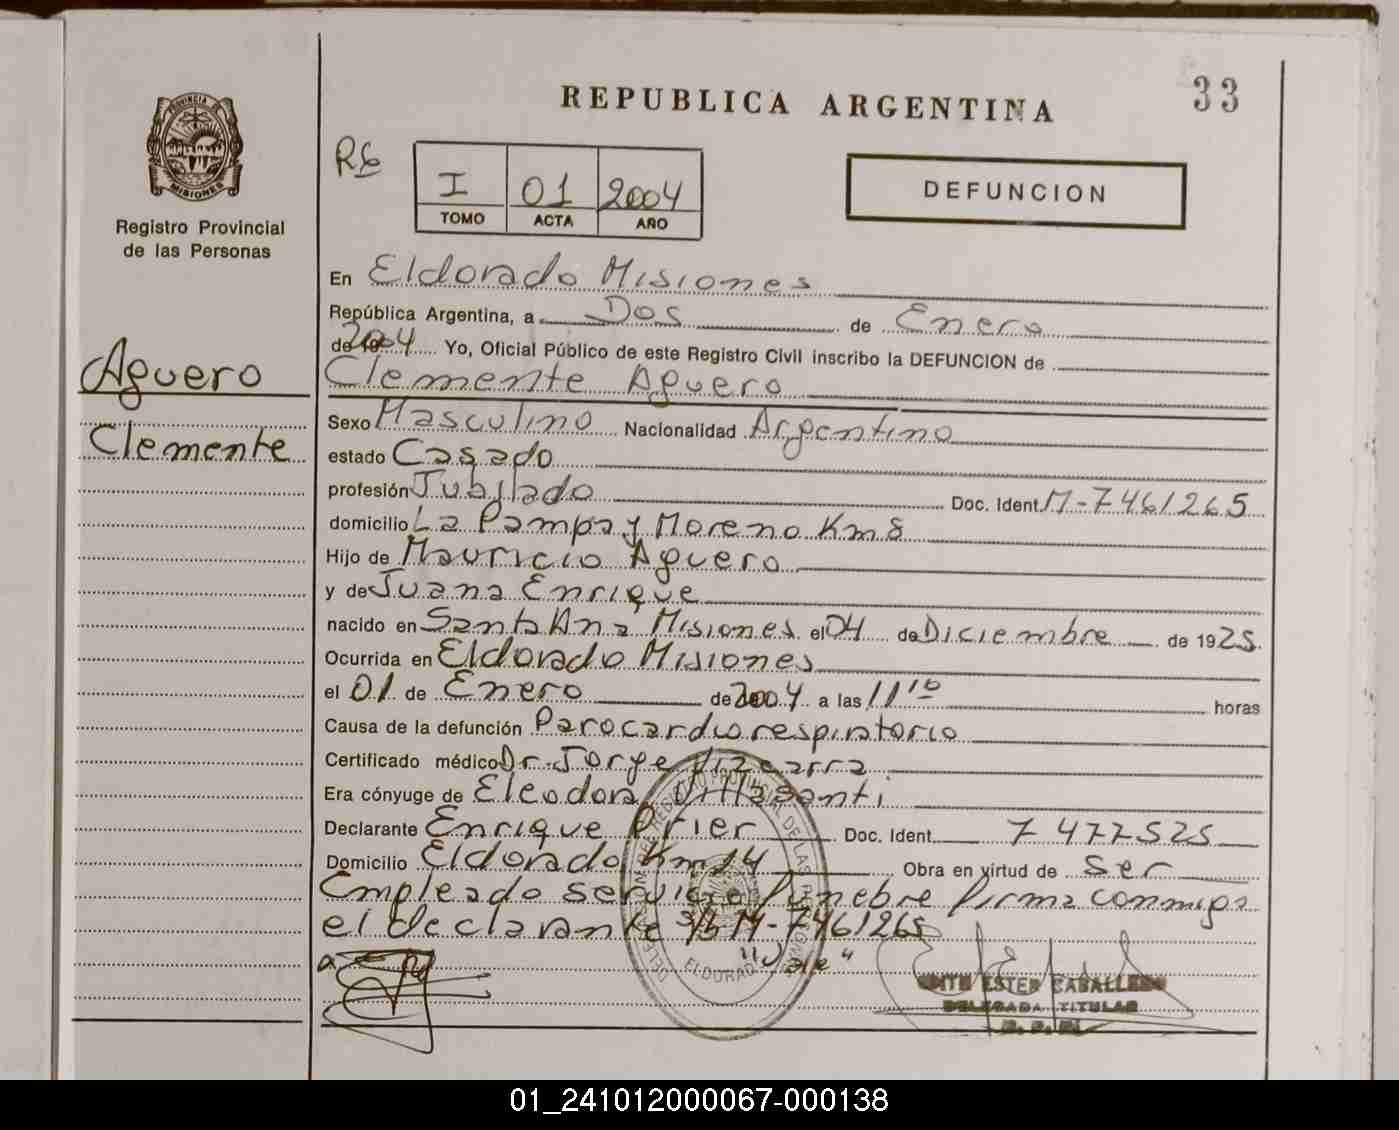 33
REPUBLICA ARGENTINA
PROVINCIA DE
MISIONES
Registro Provincial
de las Personas
I 01 2004
TOMO ACTA AÑO
DEFUNCION
Aguero
Clemente
En Eldorado Misiones
República Argentina, a Dos de Enero
de 19 2004 Yo, Oficial Público de este Registro Civil inscribo la DEFUNCION de
Clemente Aguero
Sexo Masculino Nacionalidad Argentino
estado Casado
profesión Jubilado Doc. Ident. M-7461265
domicilio La Pampa y Moreno Km 8
Hijo de Mauricio Aguero
y de Juana Enrique
nacido en Santa Ana Misiones el 04 de Diciembre de 1925.
Ocurrida en Eldorado Misiones
el 01 de Enero de 2004 a las 11 10 horas
Causa de la defunción Parocardiorespiratorio
Certificado médico Dr. Jorge
Era cónyuge de Eleodora Villasanti
Declarante Enrique Doc. Ident. 7477525
Domicilio Eldorado Km 14 Obra en virtud de ser
Empleado servicio funebre firma conmigo
el declarante s/b M-7461265
"Vale"
ESTER CABALLERO
DELEGADA TITULAR
01_241012000067-000138